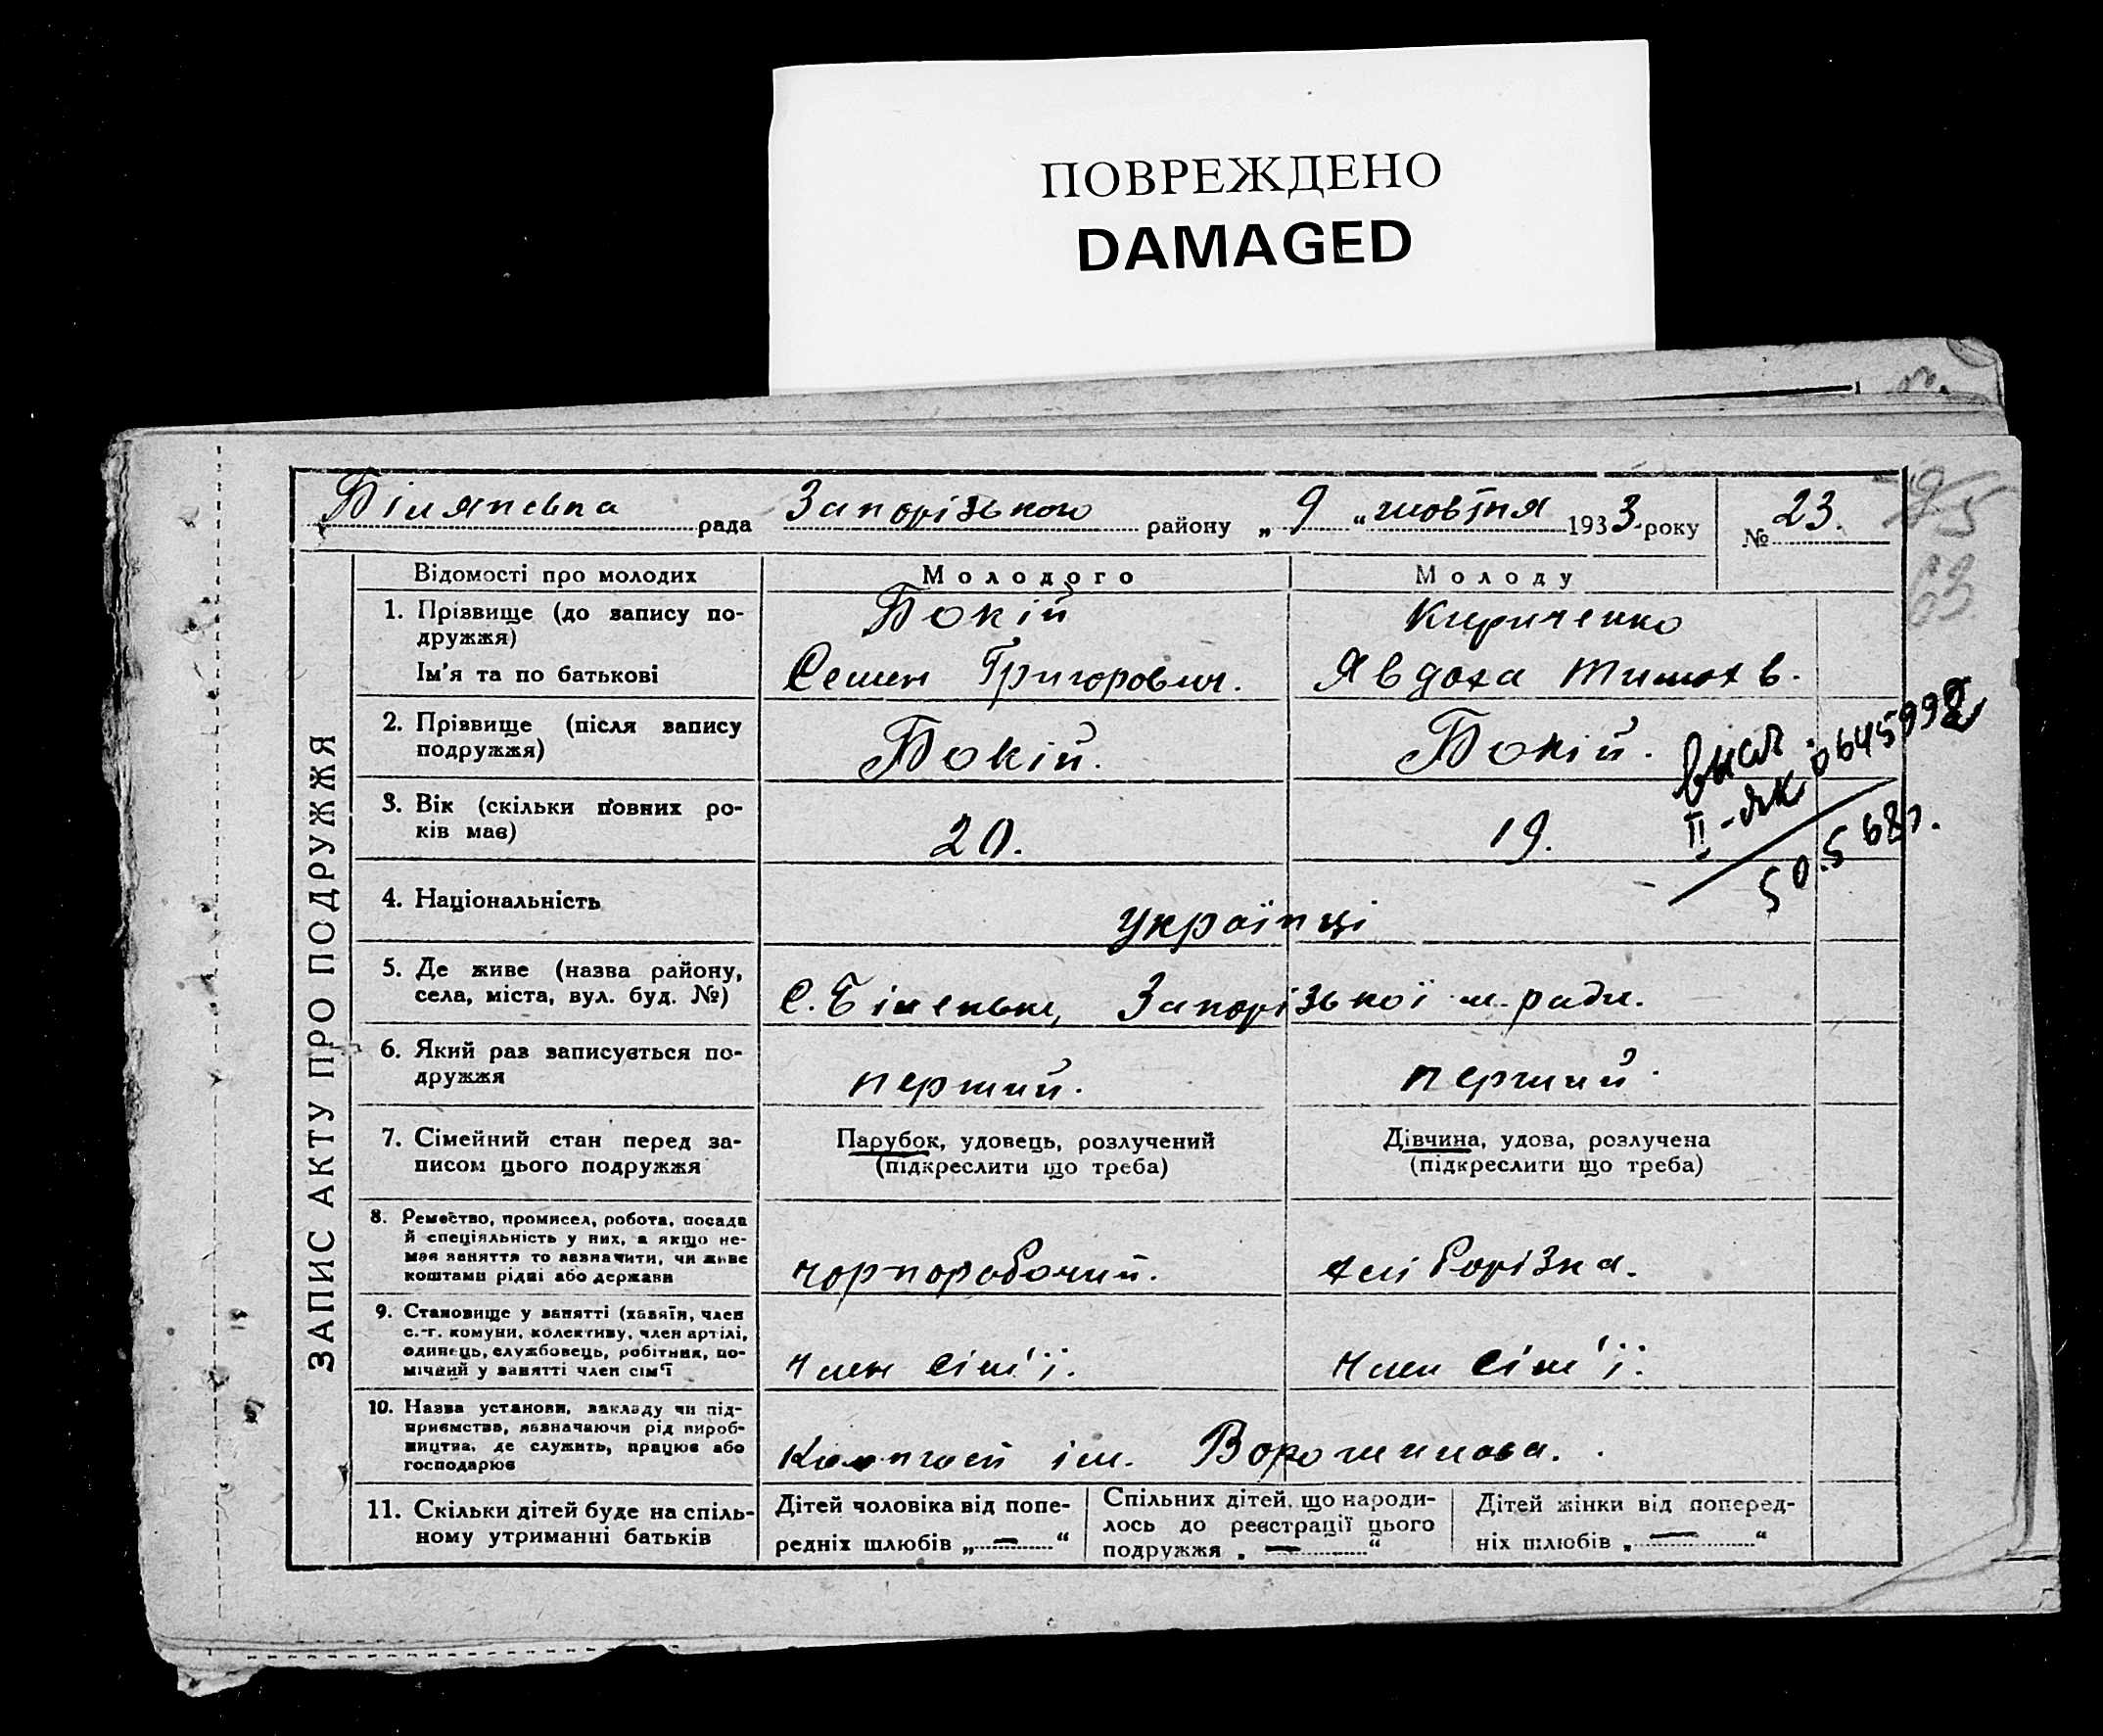 ПОВРЕЖДЕНО
DAMAGED
рада Запорізького району „ 9 “ жовтня 1933 року № 23.
ЗАПИС АКТУ ПРО ПОДРУЖЖЯ
Відомості про молодих
Молодого
Молоду
1. Прізвище (до запису по-
дружжя)
Ім'я та по батькові
Бокій
Семен Григорович.
Кириченко
Явдоха Тимох в.
2. Прізвище (після запису
подружжя)
Бокій.
Бокій.
3. Вік (скільки повних ро-
ків має)
20.
19.
4. Національність
Українці
5. Де живе (назва району,
села, міста, вул. буд. №)
С. Біленьке, Запорізької м. ради.
6. Який раз записується по-
дружжя
перший.
перший.
7. Сімейний стан перед за-
писом цього подружжя
Парубок, удовець, розлучений
(підкреслити що треба)
Дівчина, удова, розлучена
(підкреслити що треба)
8. Ремество, промисел, робота, посада
й спеціяльність у них, а якщо не-
має заняття то зазначити, чи живе
коштами рідні або держави
чорноробочий.
хліборізка.
9. Становище у занятті (хазяїн, член
с.-г. комуни, колективу, член артілі,
одинець, службовець, робітник, по-
мічний у занятті член сім'ї
член сім'ї.
член сім'ї.
10. Назва установи, закладу чи під-
приємства, зазначаючи рід вироб-
ництва, де служить, працює або
господарює
ім. Ворошилова.
11. Скільки дітей буде на спіль-
ному утриманні батьків
Дітей чоловіка від попе-
редніх шлюбів „ — “
Спільних дітей, що народи-
лось до реєстрації цього
подружжя „ — “
Дітей жінки від поперед-
ніх шлюбів „ — “
II-ЯК 0645992
63